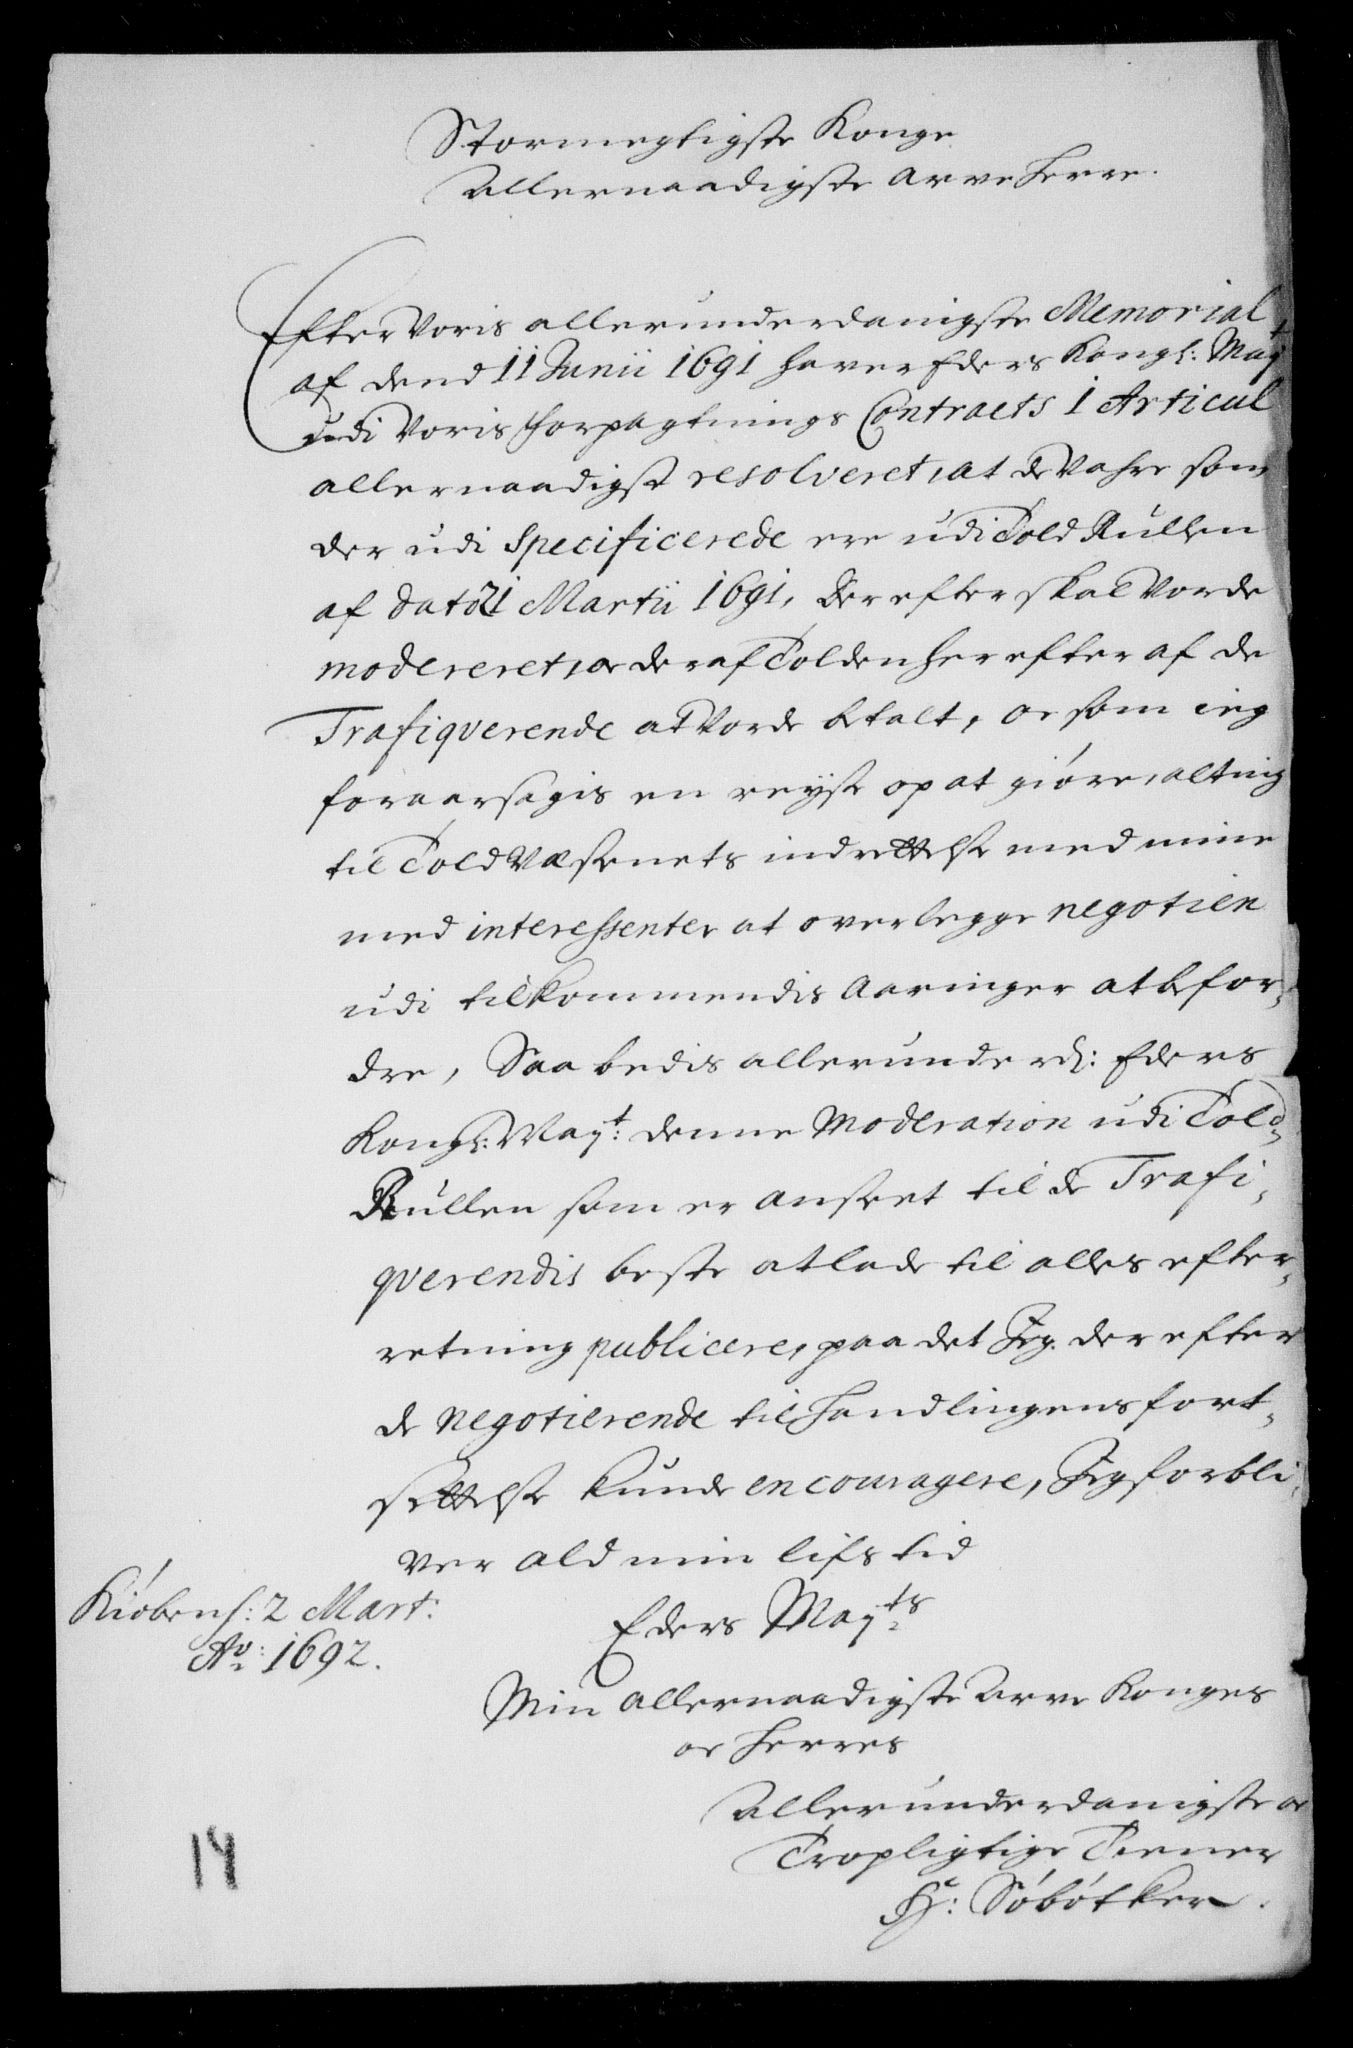 Stormegtigste Konge
Allernaadigste Arve Herre.
Efter Voris allerunderdanigste Memorial
af dend 11 Junii 1691 haver Eders Kongl: Mayt
udi Voris forpagtnings Contracts 1 Articul
allernaadigst resolveret, at de Vahre som
der udi Specificerede ere udi Told Rullen
af dato 21 Martii 1691, der efter skal Vorde
modereret, oc der af Tolden her efter af de
Trafiqverende at Vorde betalt, oc som ieg
foraarsagis en reyse op at giöre, alting
til Told Væsenets indrettelse med mine
med interessenter at overlegge negotien
udi tilkommendis Aaringer at befor,
dre, Saa bedis allerunderd: Eders
Kongl: Mayt: denne Moderation udi Told,
Rullen som er anseet til de Trafi,
qverendis beste at lade til alles efter,
retning publicere, paa det Jeg der efter
de negotierende til handlingens fort,
settelse kunde encouragere, Jeg forbli,
ver ald min lifs tid
Kiöbenh: 2 Mart:
Ao: 1692.
Eders Mayts
Min Allernaadigste Arve Konges
oc Herres
Allerunderdanigste oc
Tropligtige Tiener
H: Söbötker.
14